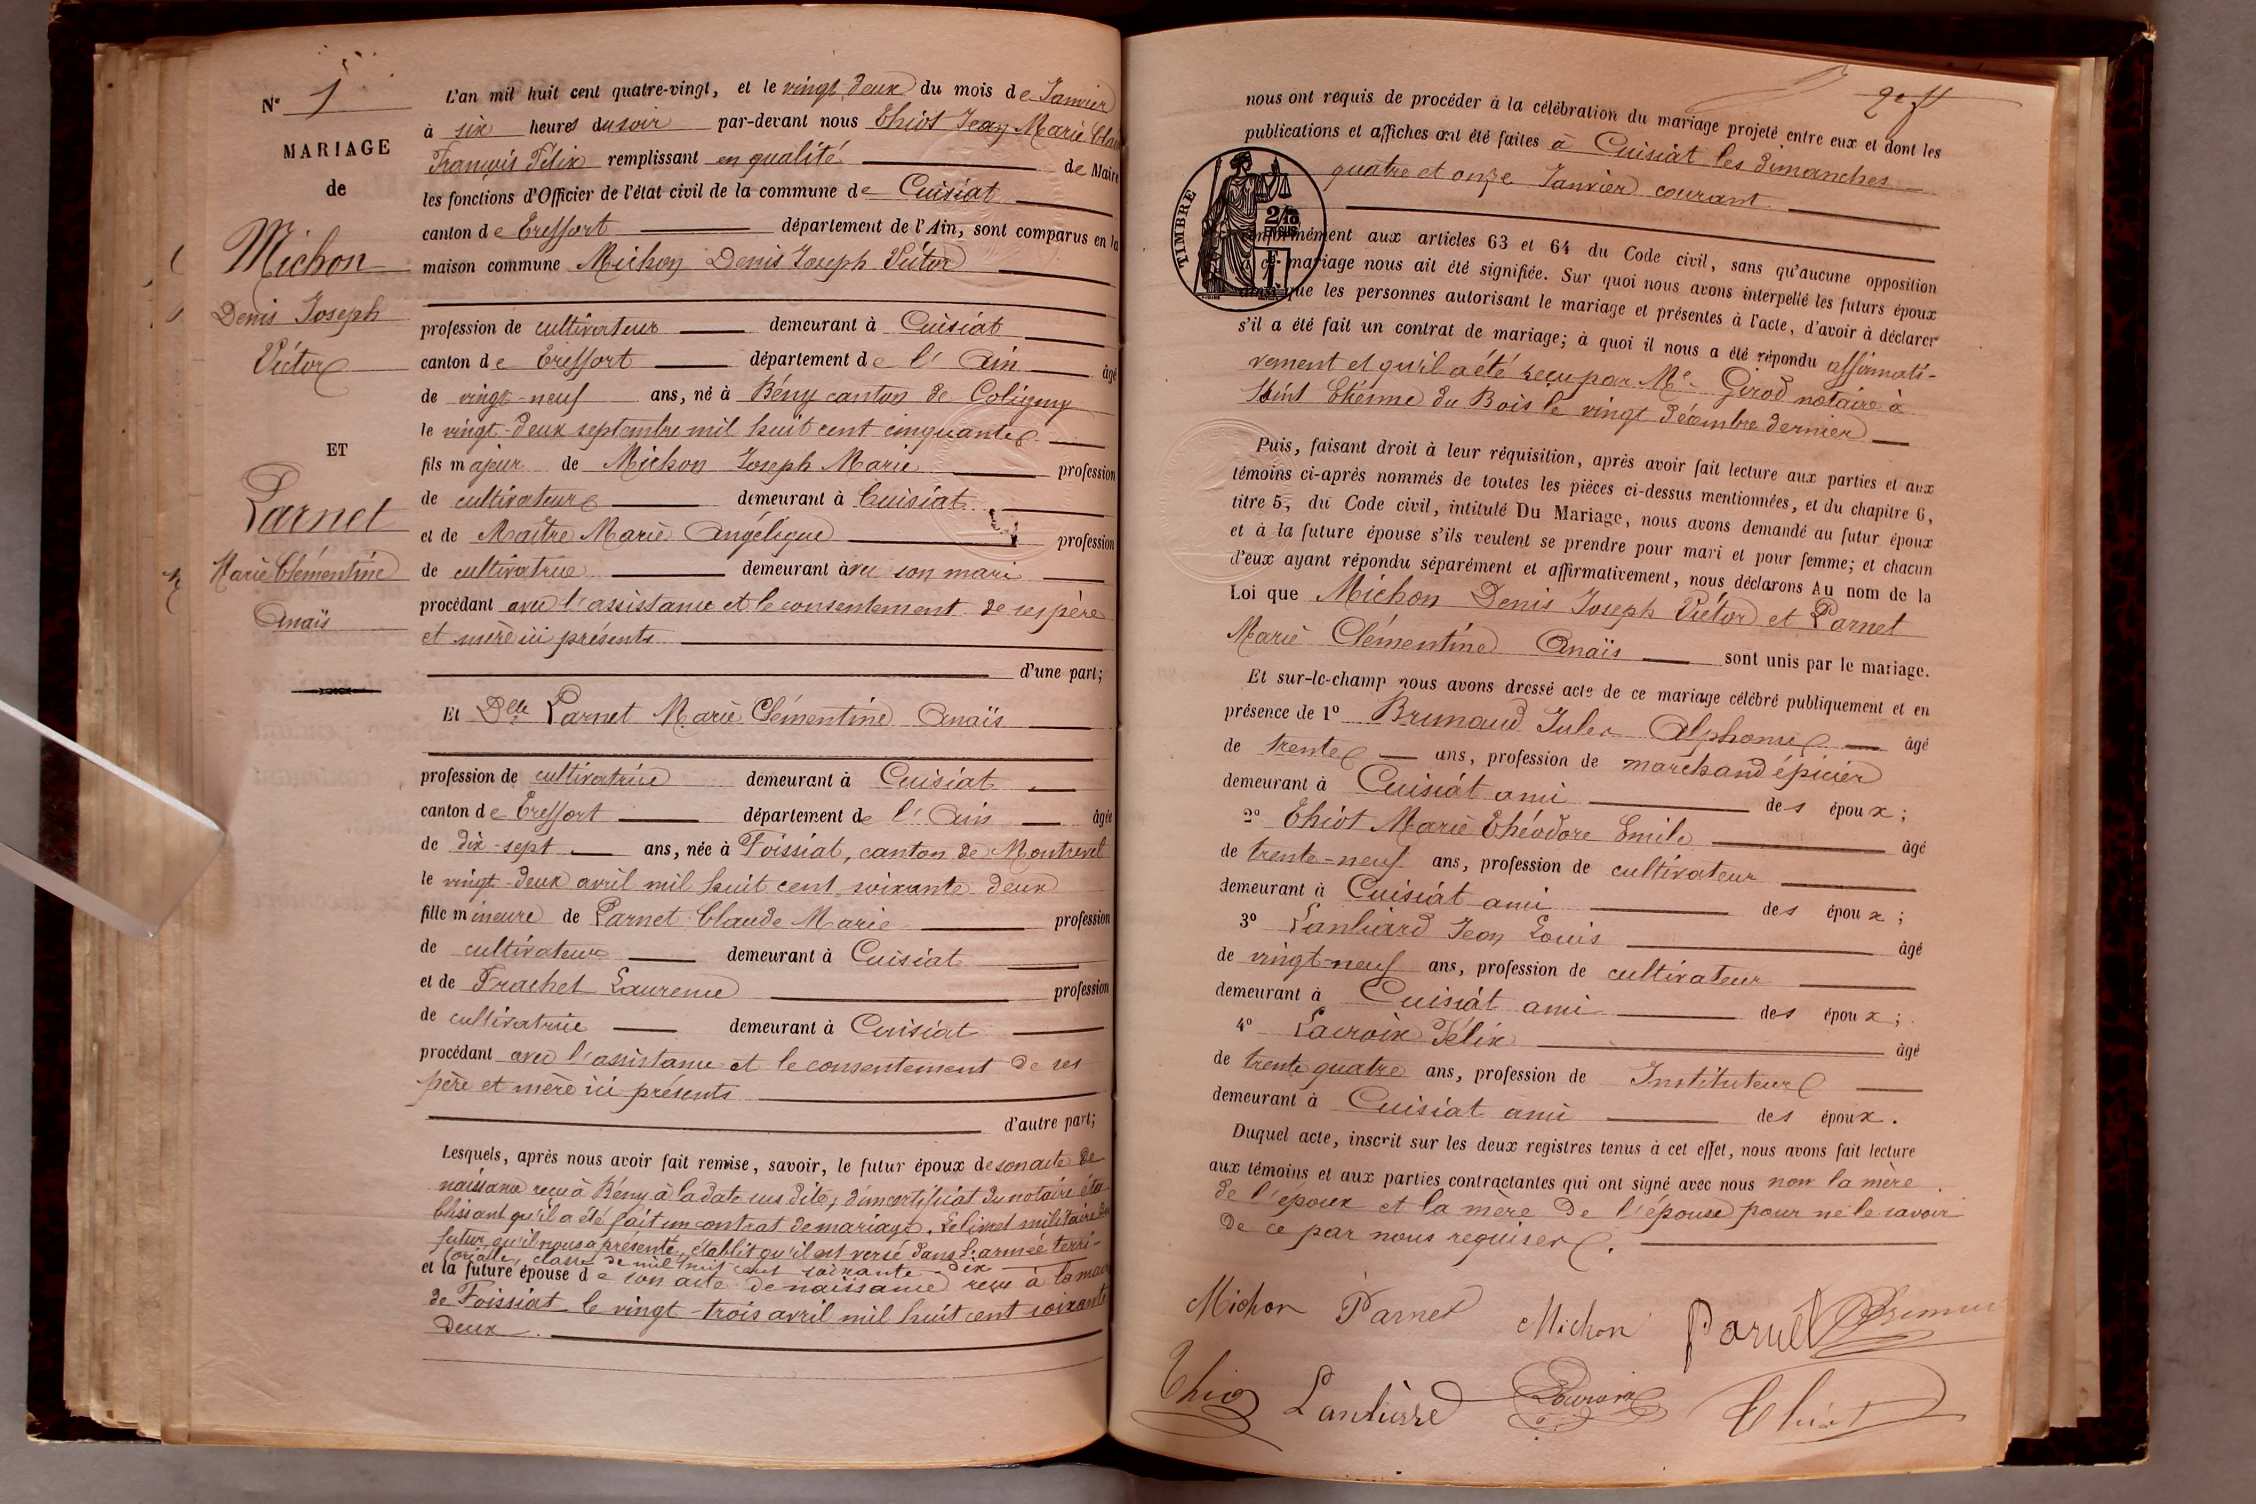 N° 1
MARIAGE
de
Michon
Denis Joseph
Victor
ET
Parnet
Marie Clémentine
Anaïs
L'an mil huit cent quatre-vingt, et le vingt deux du mois de Janvier
à six heures du soir par-devant nous Thiot Jean Marie
François Félix remplissant en qualité de Maire
les fonctions d'Officier de l'état civil de la commune de Cuisiat
canton de Treffort département de l'Ain, sont comparus en la
maison commune Michon Denis Joseph Victor
profession de cultivateur demeurant à Cuisiat
canton de Treffort département de l'Ain âgé
de vingt-neuf ans, né à Bény canton de Coligny
le vingt-deux septembre mil huit cent cinquante
fils majeur de Michon Joseph Marie profession
de cultivateur demeurant à Cuisiat
et de Maître Marie Angélique profession
de cultivatrice demeurant avec son mari
procédant avec l'assistance et le consentement de ses père
et mère ici présents
d'une part;
Et Delle Parnet Marie Clémentine Anaïs
profession de cultivatrice demeurant à Cuisiat
canton de Treffort département de l'Ain âgée
de dix-sept ans, née à Foissiat, canton de Montrevel
le vingt-deux avril mil huit cent soixante deux
fille mineure de Parnet Claude Marie profession
de cultivateur demeurant à Cuisiat
et de Frachet Laurence profession
de cultivatrice demeurant à Cuisiat
procédant avec l'assistance et le consentement de ses
père et mère ici présents
d'autre part;
Lesquels, après nous avoir fait remise, savoir, le futur époux de son acte de
naissance reçu à Bény à la date sus dite, d'un certificat du notaire éta
blissant qu'il a été fait un contrat de mariage. Le livret militaire du
futur qu'il nous a présenté, établit qu'il est versé dans l'armée terri-
toriale, classe de mil huit cent soixante-dix
et la future épouse de son acte de naissance reçu à la mairie
de Foissiat le vingt-trois avril mil huit cent soixante
deux.
2e f
nous ont requis de procéder à la célébration du mariage projeté entre eux et dont les
publications et affiches ont été faites à Cuisiat les dimanches
quatre et onze Janvier courant
TIMBRE
2/10
EN SUS
conformément aux articles 63 et 64 du Code civil, sans qu'aucune opposition
ce mariage nous ait été signifiée. Sur quoi nous avons interpellé les futurs époux
ainsi que les personnes autorisant le mariage et présentes à l'acte, d'avoir à déclarer
s'il a été fait un contrat de mariage; à quoi il nous a été répondu affirmati-
vement et qu'il a été reçu par Me Girod notaire à
Saint Etienne du Bois le vingt décembre dernier
Puis, faisant droit à leur réquisition, après avoir fait lecture aux parties et aux
témoins ci-après nommés de toutes les pièces ci-dessus mentionnées, et du chapitre 6,
titre 5, du Code civil, intitulé Du Mariage, nous avons demandé au futur époux
et à la future épouse s'ils veulent se prendre pour mari et pour femme; et chacun
d'eux ayant répondu séparément et affirmativement, nous déclarons Au nom de la
Loi que Michon Denis Joseph Victor et Parnet
Marie Clémentine Anaïs sont unis par le mariage.
Et sur-le-champ nous avons dressé acte de ce mariage célébré publiquement et en
présence de 1° Brunaud Jules Alphonse âgé
de trente ans, profession de marchand épicier
demeurant à Cuisiat ami des époux;
2° Thiot Marie Théodore Emile âgé
de trente-neuf ans, profession de cultivateur
demeurant à Cuisiat ami des époux;
3° Lanliard Jean Louis âgé
de vingt-neuf ans, profession de cultivateur
demeurant à Cuisiat ami des époux;
4° Lacroix Félix âgé
de trente quatre ans, profession de Instituteur
demeurant à Cuisiat ami des époux.
Duquel acte, inscrit sur les deux registres tenus à cet effet, nous avons fait lecture
aux témoins et aux parties contractantes qui ont signé avec nous non la mère
de l'époux et la mère de l'épouse pour ne le savoir
de ce par nous requises.
Michon Parnet Michon Parnet
Thiot Thiot